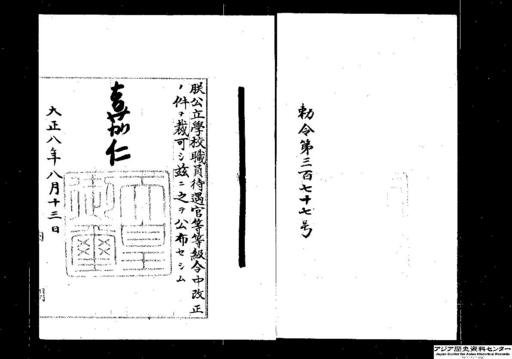 勅令第三百七十七号
朕公立學校職員待遇官等等級令中改正
ノ件ヲ裁可シ茲ニ之ヲ公布セシム
嘉仁
天皇御璽
大正八年八月十三日
アジア歴史資料センター
Japan Center for Asian Historical Records